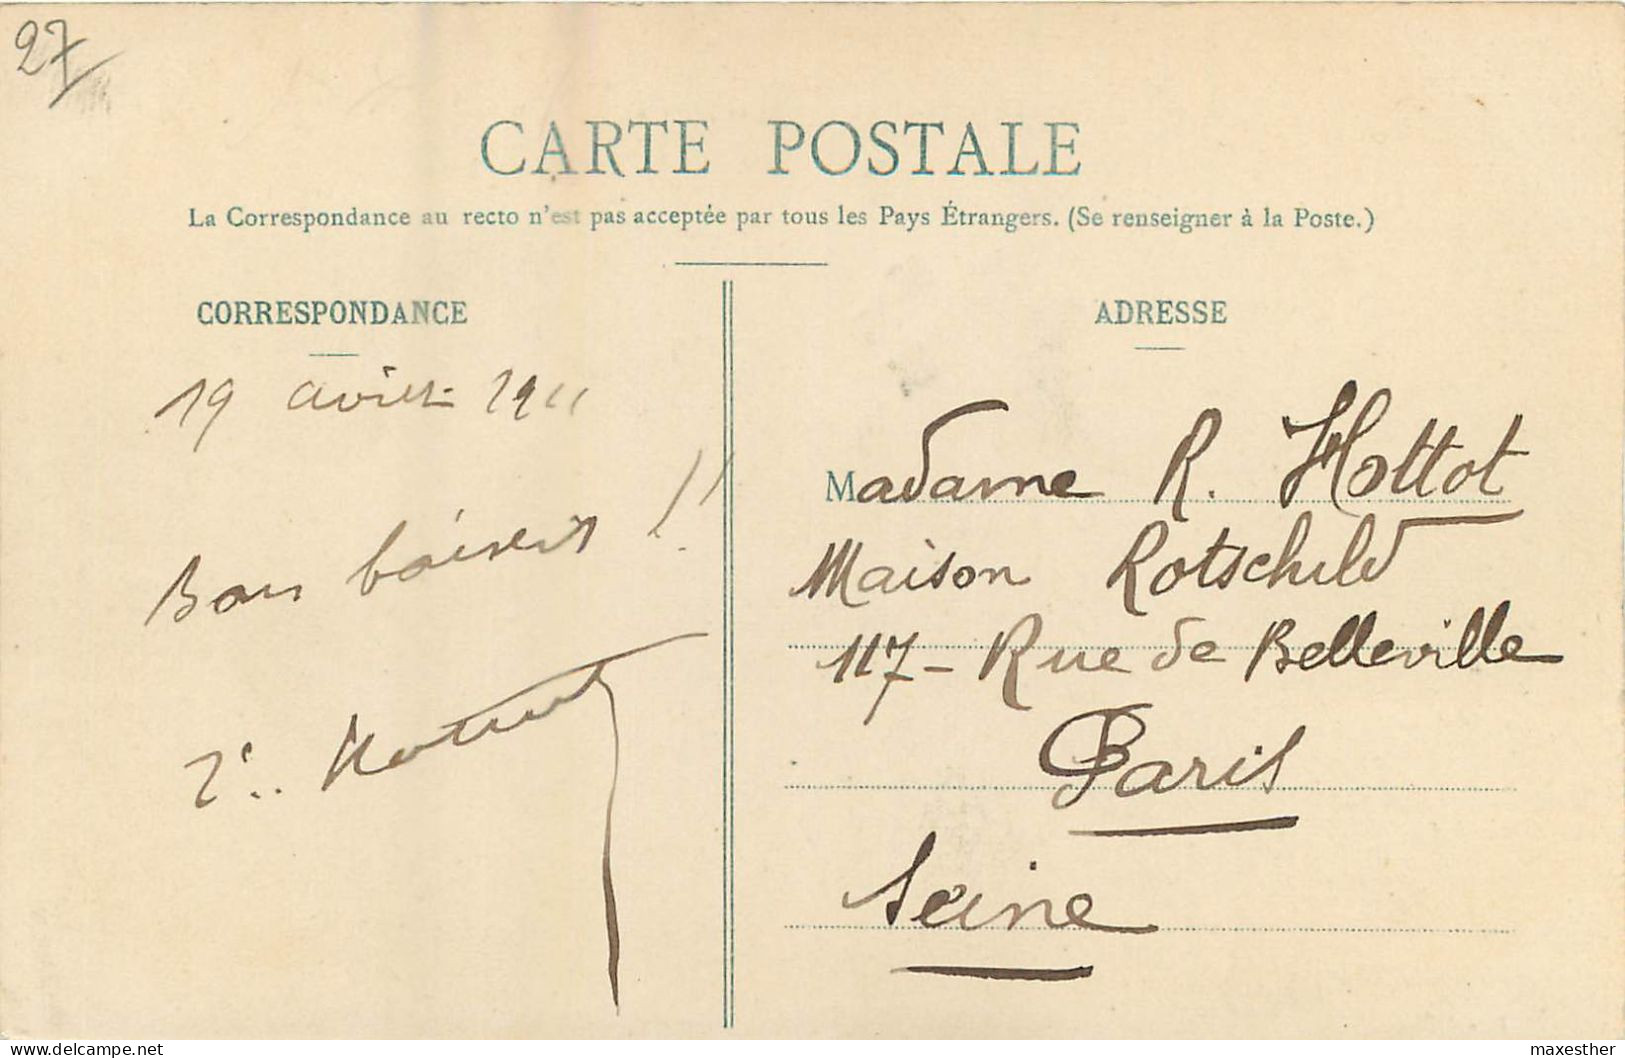 27
CARTE POSTALE
La Correspondance au recto n'est pas acceptée par tous les Pays Étrangers. (Se renseigner à la Poste.)
CORRESPONDANCE
19 avril 1911
Bons baisers !!
ADRESSE
Madame R. Hottot
Maison Rotschild
117 - Rue de Belleville
Paris
Seine
delcampe.net
maxesther